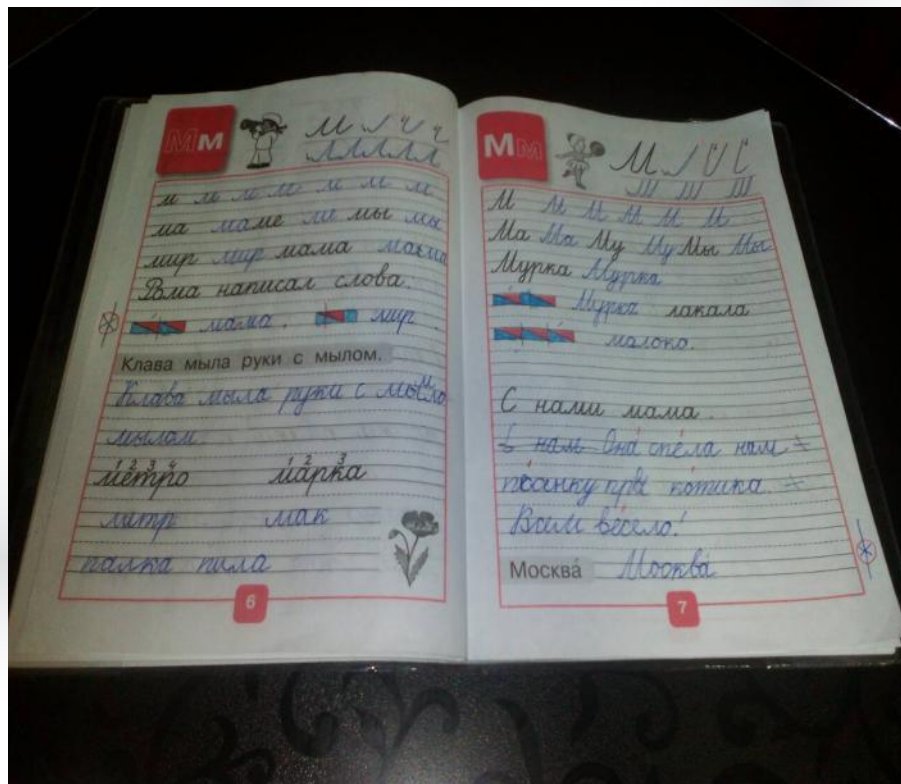 Мм
М
м м м м м м м
ма маме ме мы мы
мир мир мама мама
Рома написал слова.
мама. мир.
Клава мыла руки с мылом.
Клава мыла руки с
мылом.
1 2 3 4 1 2 3
метро марка
метр мак
палка пила
6
Мм
М
М М М М М М
Ма Ма Му Му Мы Мы
Мурка Мурка
Мурка лакала
молоко.
С нами мама.
нам Она спела нам
котика.
Всем весело!
Москва́ Москва́
7